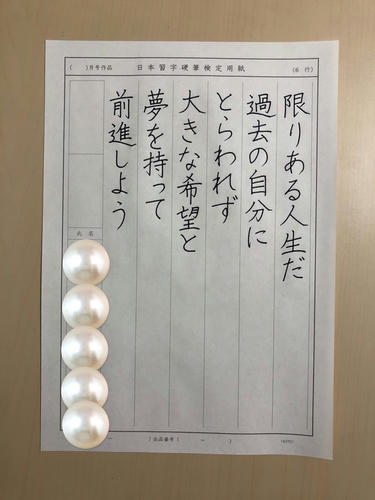 (　　)月号作品　日本習字硬筆検定用紙　(6 行)
限りある人生だ
過去の自分に
とらわれず
大きな希望と
夢を持って
前進しよう
氏名
)出品番号(　　－　　)